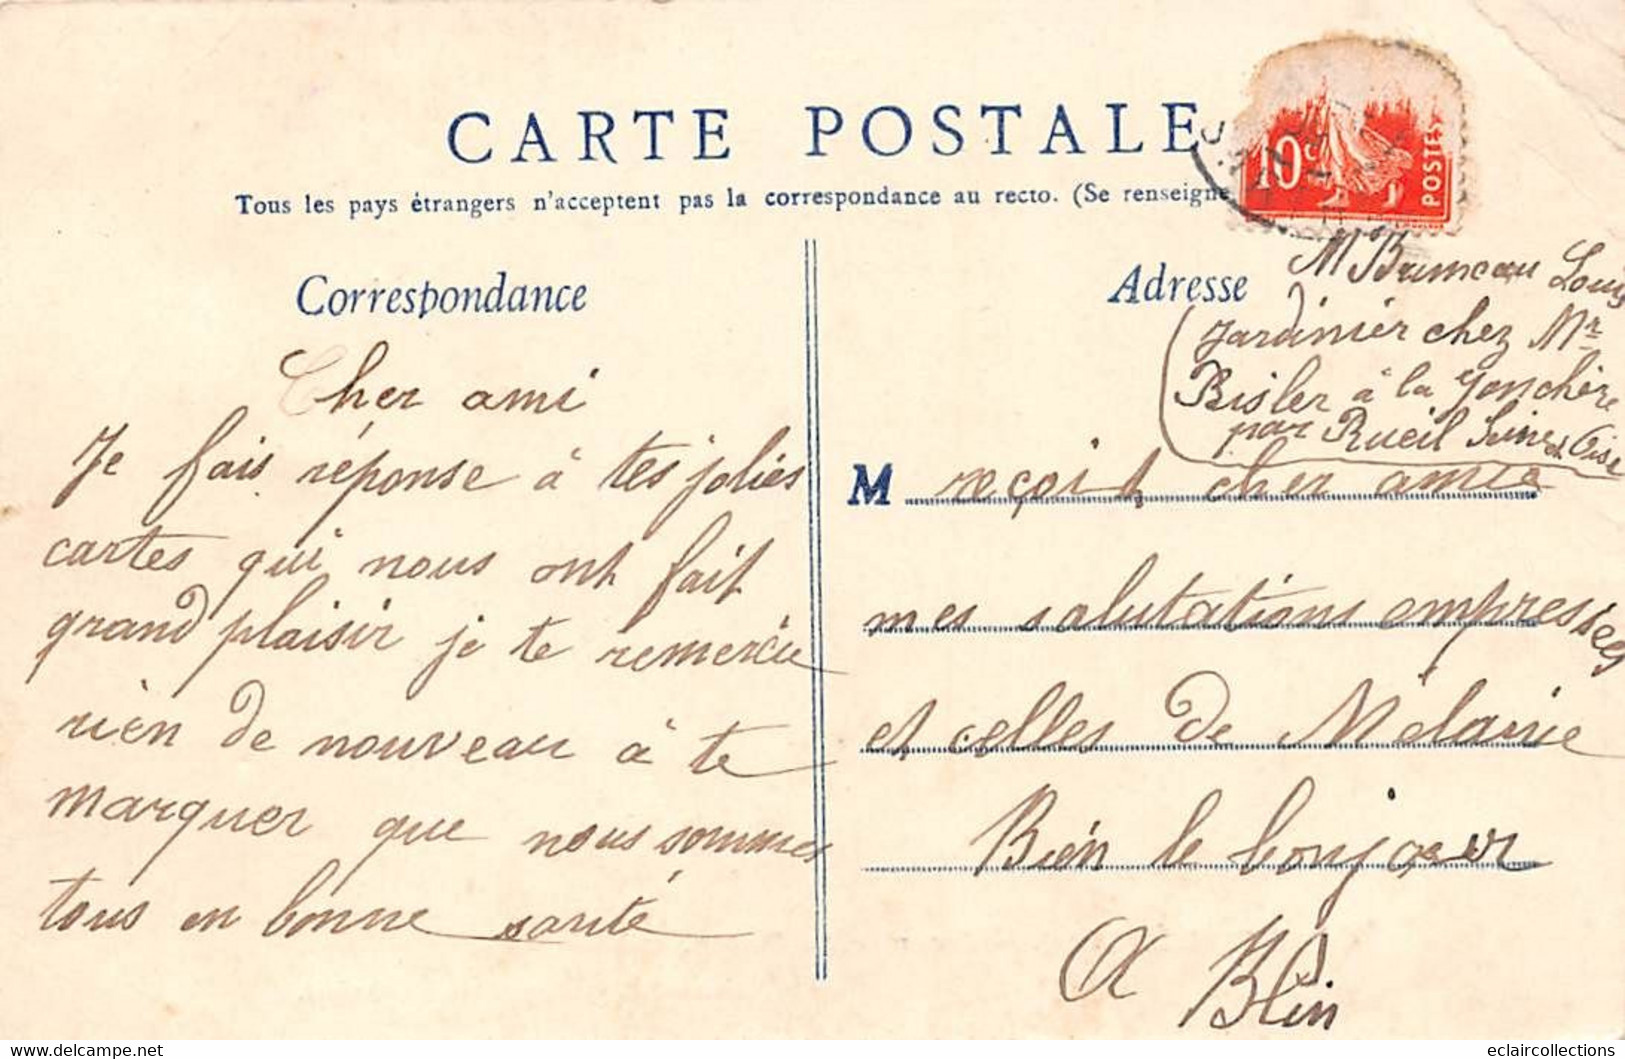 CARTE POSTALE
Tous les pays étrangers n'acceptent pas la correspondance au recto. (Se renseigne
10c
POSTES
Correspondance
Cher ami
Je fais réponse à tes jolies
cartes qui nous ont fait
grand plaisir je te remercie
rien de nouveau à te
marquer que nous sommes
tous en bonne santé
Adresse
M Louis
Jardinier chez Mr
Bisler à la Jonchère
par Rueil Seine et Oise
M reçoit cher amie
mes salutations empressées
et celles de Mélanie
Bien le bonjour
A Blin
eclaircollections